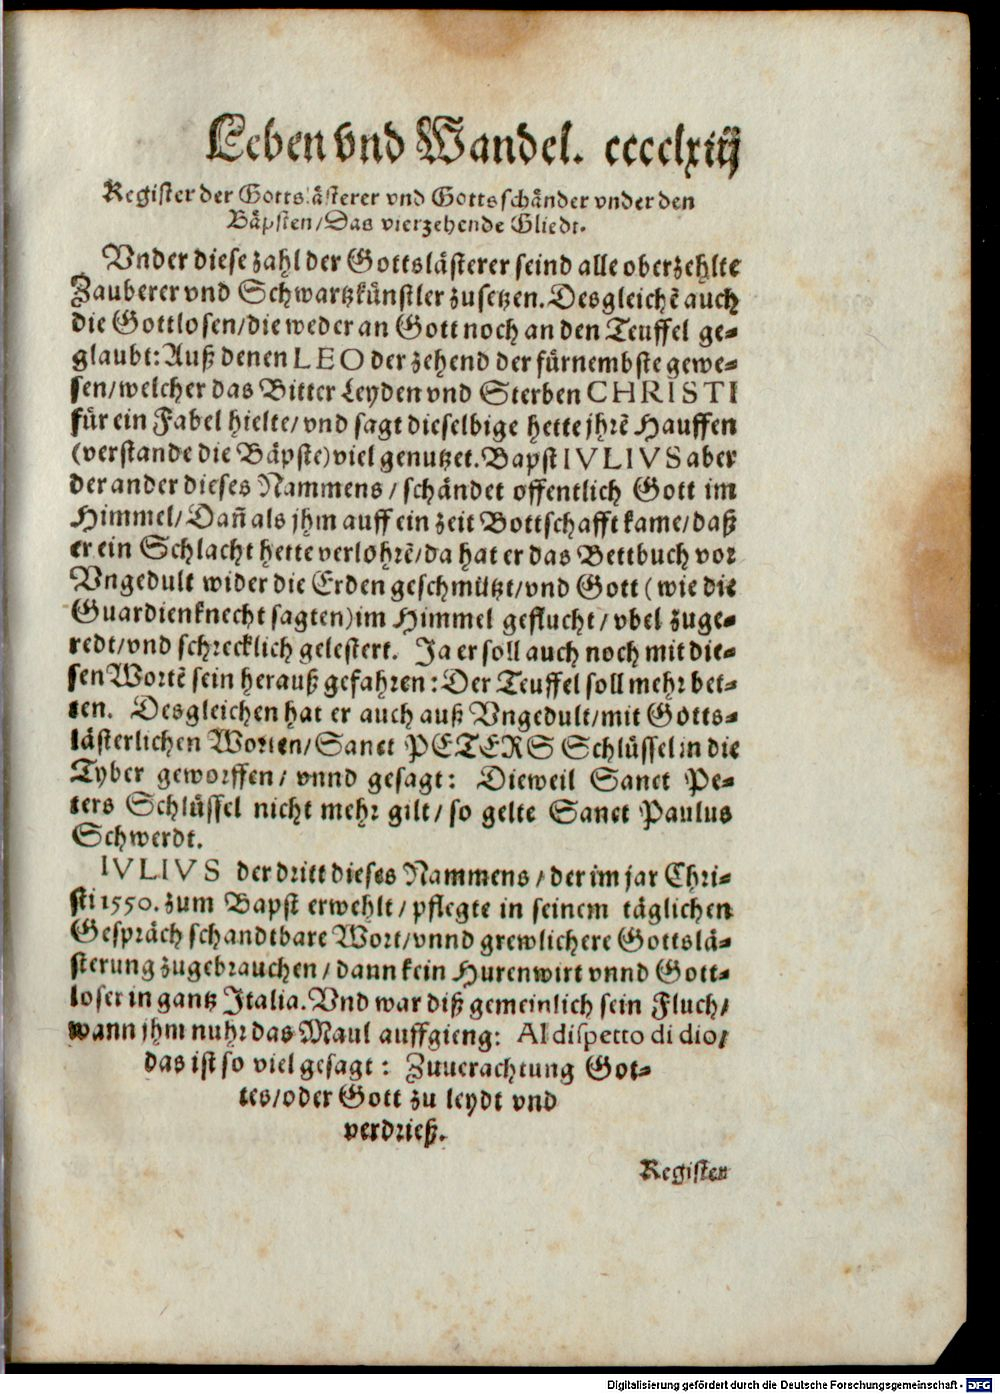 Leben vnd Wandel. cccclxiij
Register der Gottslästerer vnd Gottsschänder vnder den
Bäpsten/Das vierzehende Gliedt.
Vnder diese zahl der Gottslästerer seind alle oberzehlte
Zauberer vnd Schwartzkünstler zusetzen. Desgleichē auch
die Gottlosen/die weder an Gott noch an den Teuffel ge-
glaubt: Auß denen LEO der zehend der fürnembste gewe-
sen/welcher das Bitter Leyden vnd Sterben CHRISTI
für ein Fabel hielte/vnd sagt dieselbige hette jhrē Hauffen
(verstande die Bäpste) viel genutzet. Bapst IVLIVS aber
der ander dieses Nammens/schändet offentlich Gott im
Himmel/Dañ als jhm auff ein zeit Bottschafft kame/daß
er ein Schlacht hette verlohrē/da hat er das Bettbuch vor
Vngedult wider die Erden geschmützt/vnd Gott (wie die
Guardienknecht sagten) im Himmel geflucht/vbel zuge-
redt/vnd schrecklich gelestert. Ja er soll auch noch mit die-
sen Wortē sein herauß gefahren: Der Teuffel soll mehr bet-
ten. Desgleichen hat er auch auß Vngedult/mit Gotts-
lästerlichen Worten/Sanct PETERS Schlüssel in die
Tyber geworffen/vnnd gesagt: Dieweil Sanct Pe-
ters Schlüssel nicht mehr gilt/so gelte Sanct Paulus
Schwerdt.
IVLIVS der dritt dieses Nammens/der im jar Chri-
sti 1550. zum Bapst erwehlt/pflegte in seinem täglichen
Gespräch schandtbare Wort/vnnd grewlichere Gottslä-
sterung zugebrauchen/dann kein Hurenwirt vnnd Gott-
loser in gantz Italia. Vnd war diß gemeinlich sein Fluch/
wann jhm nuhr das Maul auffgieng: Al dispetto di dio/
das ist so viel gesagt: Zuuerachtung Got-
tes/oder Gott zu leydt vnd
verdrieß.
Register
Digitalisierung gefördert durch die Deutsche Forschungsgemeinschaft - DFG